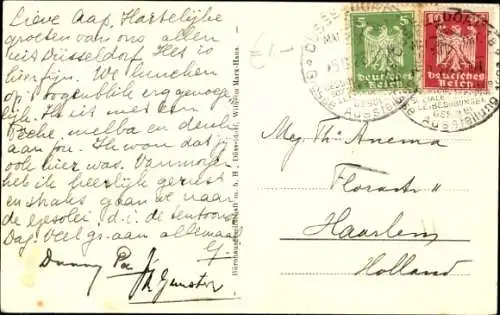 Lieve Aap, Hartelijke
groeten van ons allen
uit Düsseldorf Het is
hier fijn. We lunchen
op 't oogenblik erg genoeg-
lijk. Ik zit met een
Pêche melba en denk
aan jou. Ik wou dat je
ook hier was. Vanmorgen
heb ik heerlijk gerust
en straks gaan we naar
de Gesolei d.i. de tentoonst.
Dag. Veel gr. aan allemaal
Danny Pa
£1-
Bürohausgesellschaft m. b. H., Düsseldorf, Wilhelm Marx-Haus.
5
Deutsches
Reich
10
Deutsches
Reich
DÜSSELDORF
Große Ausstellung
Mej. Th. Anema
Florastr
Haarlem
Holland